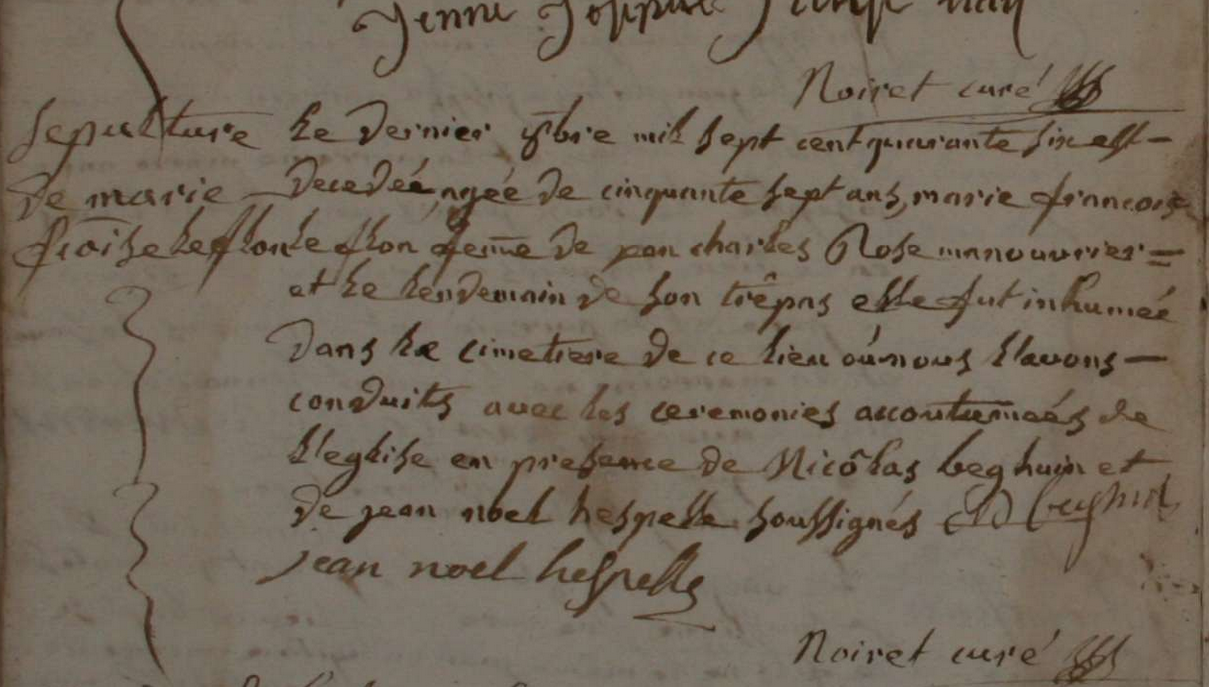 Noiret curé
Sepulture
de marie
froise Leflon
Le dernier 9bre mil sept cent quarante six est -
decedée agée de cinquante sept ans, marie francoise
Le flon feme de jean charles Rose manouvrier =
et le lendemain de son trêpas elle fut inhumeé
dans le cimetiere de ce lieu oú nous l'avons -
conduits avec les ceremonies accoutumeés de
l'eglise en presence de Nicôlas beghuin et
de jean noel hespelle soussignés
jean noel hespelle
Noiret curé